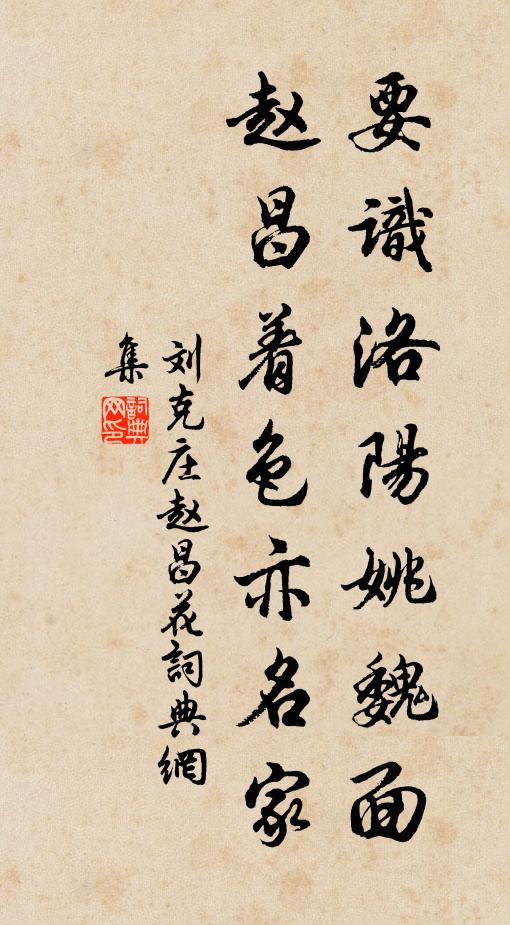 要識洛陽姚魏面
赵昌着色亦名家
刘克庄赵昌花詞典網
集
詞典网印